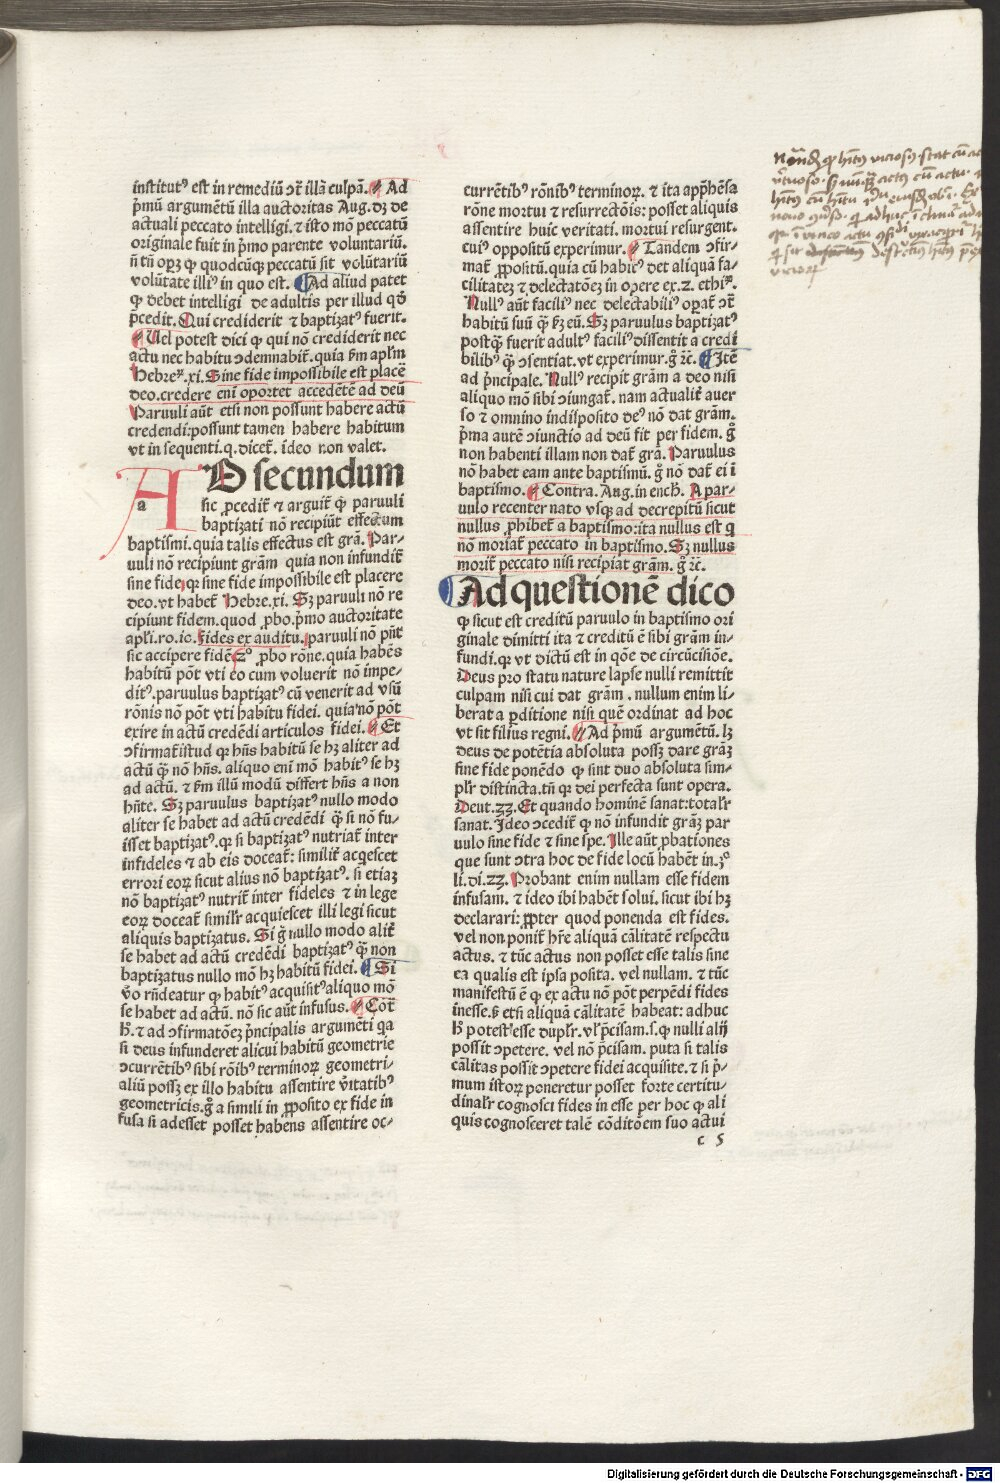 institutꝰ est in remediū ↄt̄ illā culpā. Ad
pⁱmū argumētū illa auctoritas Aug. dꝫ de
actuali peccato intelligi. ⁊ isto mō peccatū
originale fuit in pⁱmo parente voluntariū.
ñ tñ oꝑꝫ ꝙ quodcūqꝫ peccatū sit volūtariū
volūtate illiꝰ in quo est. Ad aliud patet
ꝙ debet intelligi de adultis per illud qd̄
p̄cedit. Qui crediderit ⁊ baptizatꝰ fuerit.
Uel potest dici ꝙ qui nō crediderit nec
actu nec habitu ↄdemnabit᷑. quia ẜm apl̄m
Hebreꝝ. xi. Sine fide impossibile est placē
deo. credere eni oportet accedētē ad deū
Paruuli aūt etsi non possunt habere actū
credendi: possunt tamen habere habitum
vt in sequenti. q. dicet᷑. ideo non valet.
AD secundum
a
sic ꝓcedit᷑ ⁊ arguit᷑ ꝙ paruuli
baptizati nō recipiūt effectum
baptismi. quia talis effectus est gr̄a. Par-
uuli nō recipiunt grām quia non infundit᷑
sine fide, qꝛ sine fide impossibile est placere
deo. vt habet᷑ Hebre. xi. Sꝫ paruuli nō re
cipiunt fidem. quod ꝓbo. pⁱmo auctoritate
apl̄i. ro. io. Fides ex auditu. paruuli nō pn̄t
sic accipere fidē. 2ᵒ ꝓbo rōne. quia habēs
habitū pōt vti eo cum voluerit nō impe-
ditꝰ. paruulus baptizatꝰ cū venerit ad vsū
rōnis nō pōt vti habitu fidei. quia nō pōt
exire in actū credēdi articulos fidei. Et
ↄfirmat᷑ istud qꝛ hn̄s habitū se hꝫ aliter ad
actū ꝙ̄ nō hn̄s. aliquo eni mō habitꝰ se hꝫ
ad actū. ⁊ ẜm illū modū differt hn̄s a non
hn̄te. Sꝫ paruulus baptizatꝰ nullo modo
aliter se habet ad actū credēdi ꝙ̄ si nō fu-
isset baptizatꝰ. qꝛ si baptizatꝰ nutriat᷑ inter
infideles ⁊ ab eis doceat᷑: similit᷑ acqescet
errori eoꝝ sicut alius nō baptizatꝰ. si etiaꝫ
nō baptizatꝰ nutrit᷑ inter fideles ⁊ in lege
eoꝝ doceat᷑ simil᷑r acquiescet illi legi sicut
aliquis baptizatus. Si g̊ nullo modo alit᷑
se habet ad actū credēdi baptizatꝰ ꝙ̄ non
baptizatus nullo mō hꝫ habitū fidei. Si
v̊o rn̄deatur ꝙ habitꝰ acquisitꝰ aliquo mō
se habet ad actū. nō sic aūt infusus. Cōt᷑
hͦ. ⁊ ad ↄfirmatōeꝫ pⁱncipalis argumēti qa
si deus infunderet alicui habitū geometrie
ↄcurrētibꝰ sibi rōibꝰ terminoꝝ geometri-
aliū possꝫ ex illo habitu assentire v̄itatibꝰ
geometricis. g̊ a simili in ꝓposito ex fide in
fusa si adesset posset habens assentire oc-
currētibꝰ rōnibꝰ terminoꝝ. ⁊ ita app̄hēsa
rōne mortui ⁊ resurrectōis: posset aliquis
assentire huic veritati. mortui resurgent.
cuiꝰ oppositū experimur. Tandem ↄfir-
mat᷑ ꝓpositū. quia cū habitꝰ det aliquā fa-
cilitateꝫ ⁊ delectatōeꝫ in opere ex. 2. ethiꝝ.
Nullꝰ aūt faciliꝰ nec delectabiliꝰ operat᷑ ↄt̄
habitū suū ꝙ̄ ẜꝫ eū. Sꝫ paruulus baptizatꝰ
postqꝫ̄ fuerit adultꝰ faciliꝰ dissentit a credi
bilibꝰ ꝙ̄ ↄsentiat. vt experimur. g̊ ⁊c. Itē
ad pⁱncipale. Nullꝰ recipit grām a deo nisi
aliquo mō sibi ↄiungat᷑. nam actualit᷑ auer
so ⁊ omnino indisposito deꝰ nō dat grām.
pⁱma autē ↄiunctio ad deū fit per fidem. g̊
non habenti illam non dat᷑ gr̄a. Paruulus
nō habet eam ante baptismū. g̊ nō dat᷑ ei ī
baptismo. Contra. Aug. in ench. A par-
uulo recenter nato vsqꝫ ad decrepitū sicut
nullus ꝓhibet᷑ a baptismo: ita nullus est q
nō moriat᷑ peccato in baptismo. Sꝫ nullus
morit᷑ peccato nisi recipiat grām. g̊ ⁊c.
Ad questionē dico
ꝙ sicut est creditū paruulo in baptismo ori
ginale dimitti ita ⁊ creditū ē sibi grām in-
fundi. qꝛ vt dictū est in qōe de circūcisiōe.
Deus pro statu nature lapse nulli remittit
culpam nisi cui dat grām. nullum enim li-
berat a ꝑditione nisi quē ordinat ad hoc
vt sit filius regni. Ad pⁱmū argumētū. lꝫ
deus de potētia absoluta possꝫ dare grāꝫ
sine fide ponēdo ꝙ sint duo absoluta sim-
pl᷑r distincta. tn̄ qꝛ dei perfecta sunt opera.
Deut. 33. Et quando hominē sanat: total᷑r
sanat. Ideo ↄcedit᷑ ꝙ nō infundit grāꝫ par
uulo sine fide ⁊ sine spe. Ille aūt ꝓbationes
que sunt ↄtra hoc de fide locū habēt in. 3ͦ
li. di. 23. Probant enim nullam esse fidem
infusam. ⁊ ideo ibi habēt solui. sicut ibi hꝫ
declarari: ꝓpter quod ponenda est fides.
vel non ponit᷑ hr̄e aliquā q̄litatē respectu
actus. ⁊ tūc actus non posset esse talis sine
ea qualis est ipsa posita. vel nullam. ⁊ tūc
manifestū ē ꝙ ex actu nō pōt perpēdi fides
inesse. ẜ etsi aliquā cālitatē habeat: adhuc
hͦ potest esse dupl᷑r. vꝉ p̄cisam. s. ꝙ nulli alij
possit ↄpetere. vel nō p̄cisam. puta si talis
cālitas possit ↄpetere fidei acquisite. ⁊ si pⁱ-
mum istoꝝ poneretur posset forte certitu-
dinal᷑r cognosci fides in esse per hoc ꝙ ali
quis cognosceret talē cōditōem suo actui
c 5
Digitalisierung gefördert durch die Deutsche Forschungsgemeinschaft - DFG